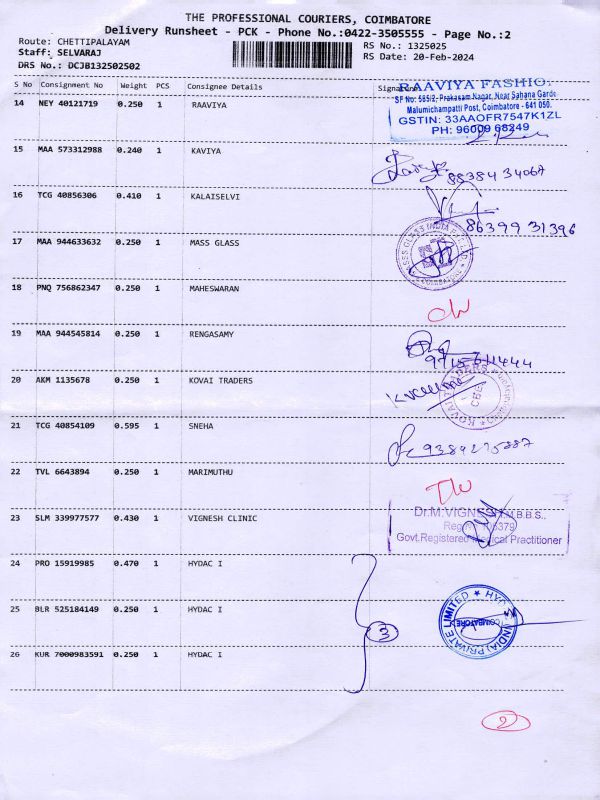 THE PROFESSIONAL COURIERS, COIMBATORE
Delivery Runsheet - PCK - Phone No.:0422-3505555 - Page No.:2
Route: CHETTIPALAYAM RS No.: 1325025
Staff: SELVARAJ RS Date: 20-Feb-2024
DRS No.: DCJB132502502
S No Consignment No Weight PCS Consignee Details
RAAVIYA FASHIO
SF No: 585/2, Prakasam Nagar, Near Sahana Garde
14 NEY 40121719 0.250 1 RAAVIYA
Malumichampatti Post, Coimbatore - 641 050.
GSTIN: 33AAOFR7547K1ZL
PH: 96009 68249
15 MAA 573312988 0.240 1 KAVIYA
88384 34067
16 TCG 40856306 0.410 1 KALAISELVI
86399 31396
17 MAA 944633632 0.250 1 MASS GLASS
GLASS INDIA
COIMBATORE
18 PNQ 756862347 0.250 1 MAHESWARAN
19 MAA 944545814 0.250 1 RENGASAMY
20 AKM 1135678 0.250 1 KOVAI TRADERS
KOVAI TRADERS
CBE
21 TCG 40854109 0.595 1 SNEHA
22 TVL 6643894 0.250 1 MARIMUTHU
23 SLM 339977577 0.430 1 VIGNESH CLINIC
Dr.M.VIGNES M.B.B.S.,
Govt.Registered Medical Practitioner
24 PRO 15919985 0.470 1 HYDAC I
25 BLR 525184149 0.250 1 HYDAC I
HYDAC (INDIA) PRIVATE LIMITED
COIMBATORE
3
26 KUR 7000983591 0.250 1 HYDAC I
2